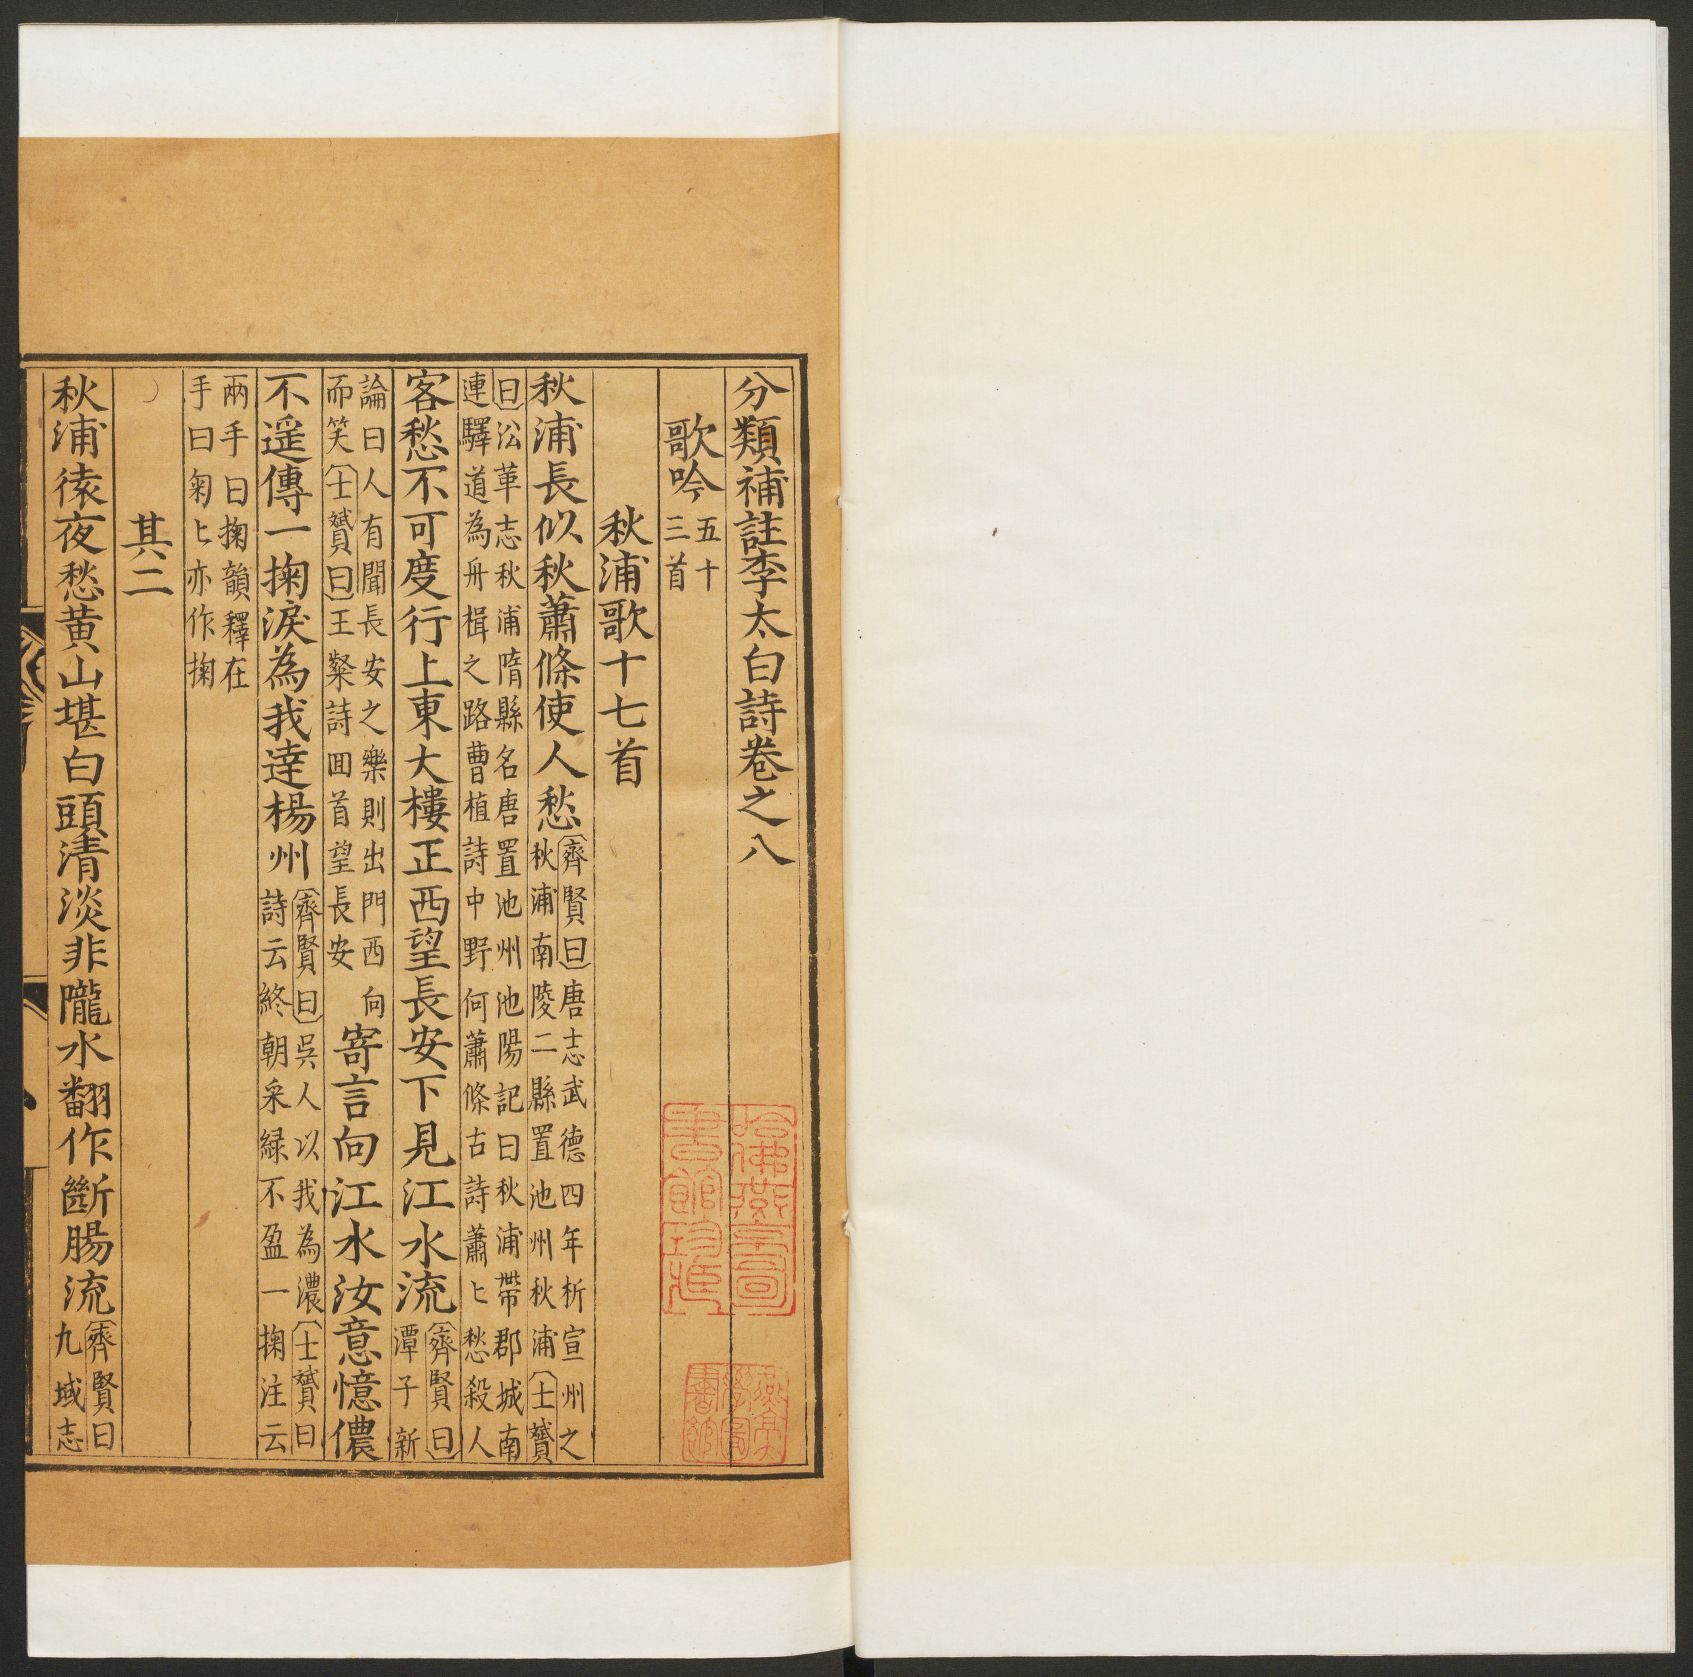 分類補註李太白詩卷之八
歌吟五十三首
秋浦歌十七首
秋浦長似秋蕭條使人愁
齊賢曰唐志武德四年析宣州之
秋浦南陵二縣置池州秋浦士贇
曰沿革志秋浦隋縣名唐置池州池陽記曰秋浦帶郡城南
連驛道為舟楫之路曹植詩中野何蕭條古詩蕭〻愁殺人
客愁不可度行上東大樓正西望長安下見江水流
齊賢曰
潭子新
論曰人有聞長安之樂則出門西向
而笑士贇曰王粲詩囬首望長安
寄言向江水汝意憶儂
不遥傳一掬淚為我逹楊州
齊賢曰吳人以我為濃士贇曰
詩云終朝采緑不盈一掬注云
兩手曰掬韻釋在
手曰匊〻亦作掬
其二
秋浦猿夜愁黄山堪白頭清淡非隴水翻作斷腸流
齊賢曰
九域志
哈佛燕京圖書館珍藏